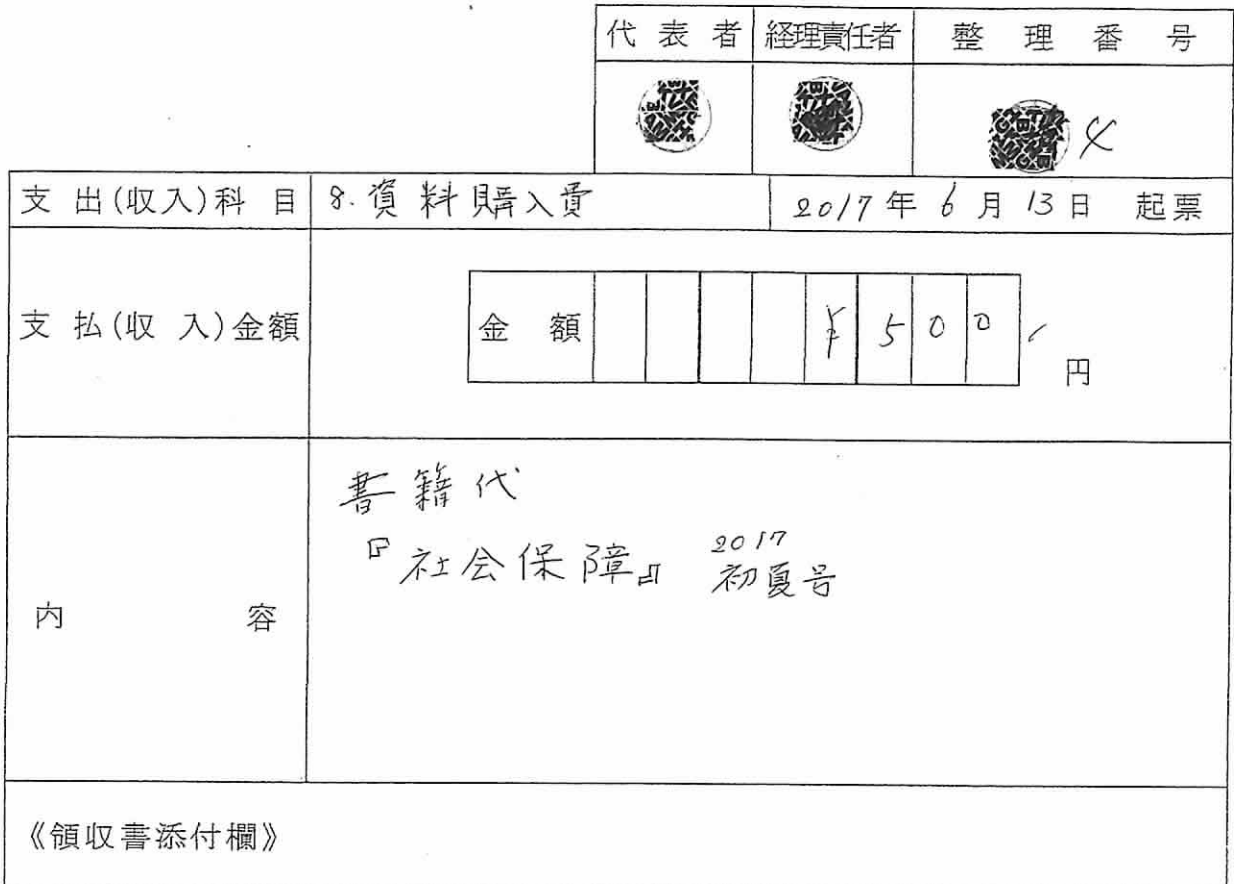 代表者 経理責任者 整理番号
4
支出(収入)科目 8.資料購入費 2017年6月13日 起票
支払(収入)金額 金額 ¥500 円
書籍代
『社会保障』 2017
初夏号
内容
《領収書添付欄》